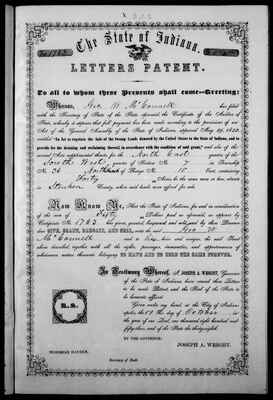 The State of Indiana.
LETTERS PATENT.
To all to whom these Presents shall come—Greeting:
Whereas, Geo W. McConnell has filed
with the Secretary of State of the State aforesaid the Certificate of the Auditor of
State, whereby it appears that full payment has been made according to the provisions of an
Act of the General Assembly of the State of Indiana, approved May 29, 1852,
entitled "An Act to regulate the Sale of the Swamp Lands donated by the United States to the State of Indiana, and to
provide for the draining and reclaiming thereof, in accordance with the condition of said grant," and also of the
several Acts supplemental thereto, for the North East quarter of the
South West quarter of Section No. 7 Township
No. 36 North of Range No. 15 East, containing
Forty Acres,
Steuben County, which said tract was offered for sale.
Now Know Ye, That the State of Indiana, for and in consideration
of the sum of Fifty Dollars paid as aforesaid, as appears by
Certificate No. 1763
GIVE, GRANT, BARGAIN, AND SELL, unto the said Geo W.
McConnell and to heirs, have and assigns, the said Tract
above described, together with all the rights, privileges, immunities, and appurtenances of
whatsoever nature thereunto belonging, TO HAVE AND TO HOLD THE SAME FOREVER.
In Testimony Whereof, I, JOSEPH A. WRIGHT, Governor
of the State of Indiana, have caused these Letters
to be made Patent and the Seal of the State to
be hereunto affixed.
L.S.
Given under my hand, at the City of Indiana-
polis, the day of October in
the year of our Lord, one thousand eight hundred and
BY THE GOVERNOR:
JOSEPH A. WRIGHT.
Secretary of State.